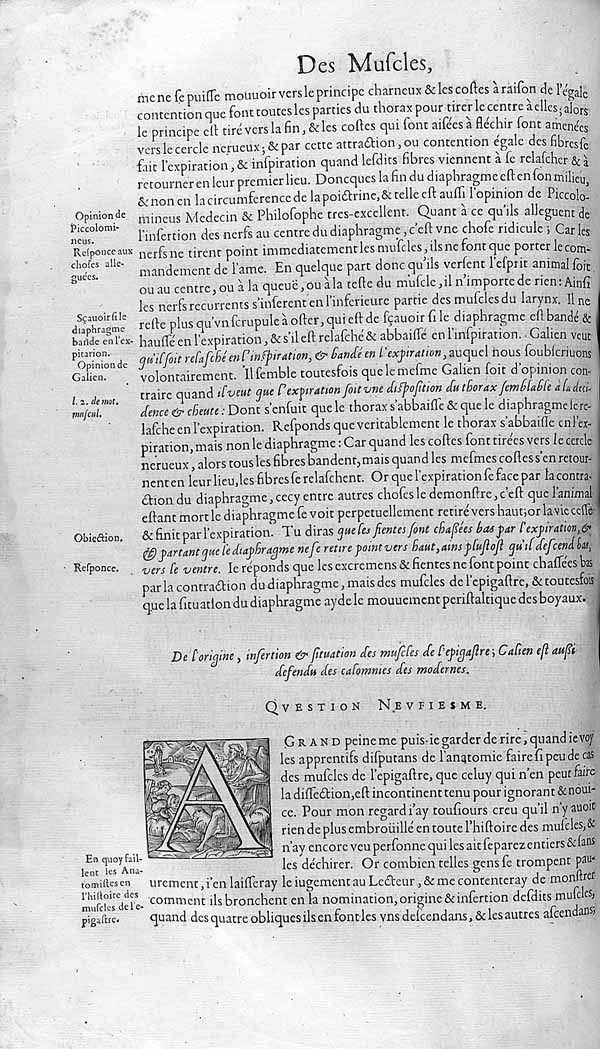 Des Muſcles,
me ne ſe puiſſe mouuoir vers le principe charneux & les coſtes à raiſon de l'égale
contention que font toutes les parties du thorax pour tirer le centre à elles; alors
le principe eſt tiré vers la fin, & les coſtes qui ſont aiſées à fléchir ſont amenées
vers le cercle nerueux; & par cette attraction, ou contention égale des fibres ſe
fait l'expiration, & inſpiration quand leſdits fibres viennent à ſe relaſcher & à
retourner en leur premier lieu. Doncques la fin du diaphragme eſt en ſon milieu,
& non en la circumference de la poictrine, & telle eſt auſſi l'opinion de Piccolo-
mineus Medecin & Philoſophe tres-excellent. Quant à ce qu'ils alleguent de
l'inſertion des nerfs au centre du diaphragme, c'eſt vne choſe ridicule; Car les
nerfs ne tirent point immediatement les muſcles, ils ne font que porter le com-
mandement de l'ame. En quelque part donc qu'ils verſent l'eſprit animal ſoit
ou au centre, ou à la queuë, ou à la teſte du muſcle, il n'importe de rien: Ainſi
les nerfs recurrents s'inſerent en l'inferieure partie des muſcles du larynx. Il ne
reſte plus qu'vn ſcrupule à oſter, qui eſt de ſçauoir ſi le diaphragme eſt bandé &
hauſſé en l'expiration, & s'il eſt relaſché & abbaiſſé en l'inſpiration. Galien veut
qu'il ſoit relaſché en l'inſpiration, & bandé en l'expiration, auquel nous ſoubſcriuons
volontairement. Il ſemble toutesfois que le meſme Galien ſoit d'opinion con-
traire quand il veut que l'expiration ſoit vne diſpoſition du thorax ſemblable à la deci-
dence & cheute: Dont s'enſuit que le thorax s'abbaiſſe & que le diaphragme ſe re-
laſche en l'expiration. Reſponds que veritablement le thorax s'abbaiſſe en l'ex-
piration, mais non le diaphragme: Car quand les coſtes ſont tirées vers le cercle
nerueux, alors tous les fibres bandent, mais quand les meſmes coſtes s'en retour-
nent en leur lieu, les fibres ſe relaſchent. Or que l'expiration ſe face par la contra-
ction du diaphragme, cecy entre autres choſes le demonſtre, c'eſt que l'animal
eſtant mort le diaphragme ſe voit perpetuellement retiré vers haut; or la vie ceſſe
& finit par l'expiration. Tu diras que les fientes ſont chaßées bas par l'expiration, &
& partant que le diaphragme ne ſe retire point vers haut, ains pluſtoſt qu'il deſcend bas,
vers le ventre. Ie réponds que les excremens & fientes ne ſont point chaſſées bas
par la contraction du diaphragme, mais des muſcles de l'epigaſtre, & toutesfois
que la ſituation du diaphragme ayde le mouuement periſtaltique des boyaux.
Opinion de
Piccolomi-
neus.
Reſponce aux
choſes alle-
guées.
Sçauoir ſi le
diaphragme
bande en l'ex-
pitarion.
Opinion de
Galien.
l. 2. de mot.
muſcul.
Obiection.
Reſponce.
De l'origine, inſertion & ſituation des muſcles de l'epigaſtre; Galien eſt außi
defendu des calomnies des modernes.
QVESTION NEVFIESME.
A GRAND peine me puis-ie garder de rire, quand ie voy
les apprentifs diſputans de l'anatomie faire ſi peu de cas
des muſcles de l'epigaſtre, que celuy qui n'en peut faire
la diſſection, eſt incontinent tenu pour ignorant & noui-
ce. Pour mon regard i'ay touſiours creu qu'il n'y auoit
rien de plus embroüillé en toute l'hiſtoire des muſcles, &
n'ay encore veu perſonne qui les ait ſeparez entiers & ſans
les déchirer. Or combien telles gens ſe trompent pau-
urement, i'en laiſſeray le iugement au Lecteur, & me contenteray de monſtrer
comment ils bronchent en la nomination, origine & inſertion deſdits muſcles,
quand des quatre obliques ils en font les vns deſcendans, & les autres aſcendans,
En quoy fail-
lent les Ana-
tomiſtes en
l'hiſtoire des
muſcles de l'e-
pigaſtre.